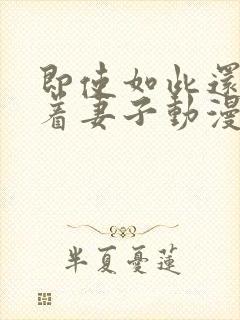 即使如此還
着妻子動漫
半夏憂蓮